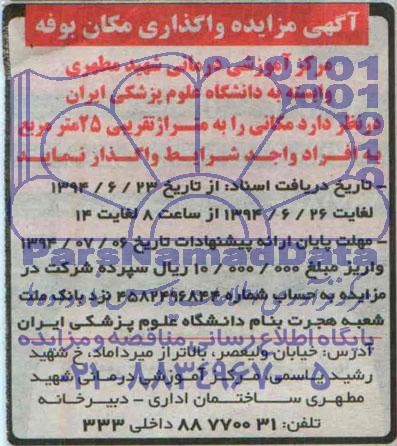 آگهی مزایده واگذاری مکان بوفه
مرکز آموزشی درمانی شهید مطهری
وابسته به دانشگاه علوم پزشکی ایران
درنظر دارد مکانی را به متراژتقریبی ۲۵متر مربع
به افراد واجد شرایط واگذار نماید
- تاریخ دریافت اسناد: از تاریخ ۲۳ / ۶ / ۱۳۹۴
لغایت ۲۶ / ۶ / ۱۳۹۴ از ساعت ۸ لغایت ۱۴
- مهلت پایان ارائه پیشنهادات تاریخ ۰۶ / ۰۷ / ۱۳۹۴
ParsNamadData
واریز مبلغ ۱۰/۰۰۰/۰۰۰ ریال سپرده شرکت در
مزایده به حساب شماره ۴۵۸۲۴۹۶۸۴۴ نزد بانک ملت
شعبه هجرت بنام دانشگاه علوم پزشکی ایران
پایگاه اطلاع رسانی مناقصه و مزایده
آدرس: خیابان ولیعصر، بالاتر از میرداماد، خ شهید
رشید یاسمی، مرکز آموزشی درمانی شهید
۰۲۱-۸۸۳۴۹۶۷۰-۵
مطهری ساختمان اداری - دبیرخانه
تلفن: ۳۱ ۷۷۰۰ ۸۸ داخلی ۳۳۳